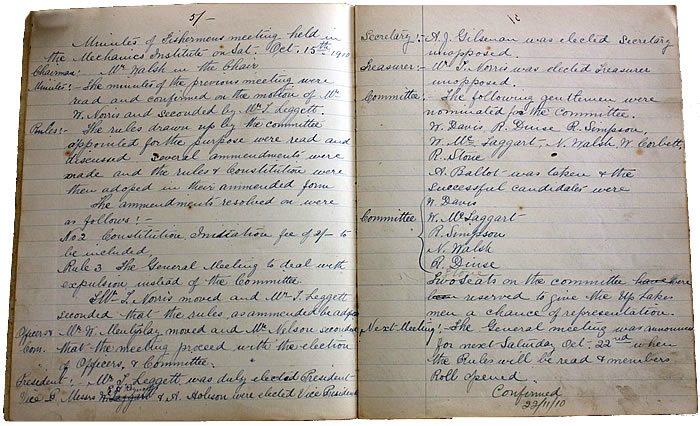 5/-
Minutes of Fishermens meeting held in
the Mechanics Institute on Sat. Oct. 15th 1910
Chairman:- Mr Walsh in the Chair
Minutes:- The minutes of the previous meeting were
read and confirmed on the motion of Mr
W. Norris and seconded by Mr T. Leggett.
Rules:- The rules drawn up by the committee
appointed for the purpose were read and
discussed. Several ammendments were
made and the rules & Constitution were
then adoped in their ammended form
The ammendments resolved on were
as follows:-
No 2 Constitution. Initiation fee of 2/- to
be included.
Rule 3 The General Meeting to deal with
expulsion instead of the Committee.
Mr T. Norris moved and Mr T. Leggett
seconded that the rules as ammended be adopted
Officers & Mr W. Mentiplay moved and Mr Nelson seconded
Com. that the meeting proceed with the election
of Officers & Committee.
President:- Mr T. Leggett was duly elected President
Vice P. Messrs & A. Hobson were elected Vice Presidents
Secretary:- A. J. Gilsenan was elected Secretary
unopposed.
Treasurer:- Mr T. Norris was elected Treasurer
unopposed.
Committee:- The following gentlemen were
nominated for the Committee.
W. Davis, R. Dinse R. Simpson,
W. McTaggart. N. Walsh W. Corbett,
R. Stone
A Ballot was taken & the
successful candidates were
W. Davis
Committee W. McTaggart
R. Simpson
N. Walsh
R. Dinse
Two seats on the committee were
reserved to give the Up Lakes
men a chance of representation.
Next Meeting:- The General meeting was announced
for next Saturday Oct. 22nd when
the Rules will be read & members
Roll opened.
Confirmed
22/11/10